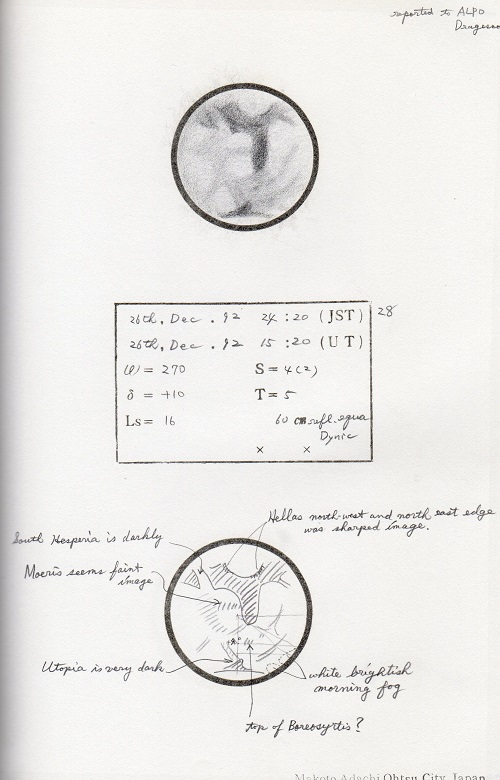 reported to ALPO
26th, Dec . 92 24 : 20 (JST)
28
26th, Dec . 92 15 : 20 (UT)
ω = 270 S = 4(2)
δ = +10 T = 5
Ls = 16 60 cm refl. equa
Dynic
× ×
Hellas north-west and north east edge
was sharped image.
South Hesperia is darkly
Moeris seems faint
image
Utopia is very dark
white brightish
morning fog
top of Boreosyrtis?
Makoto Adachi Ohtsu City, Japan